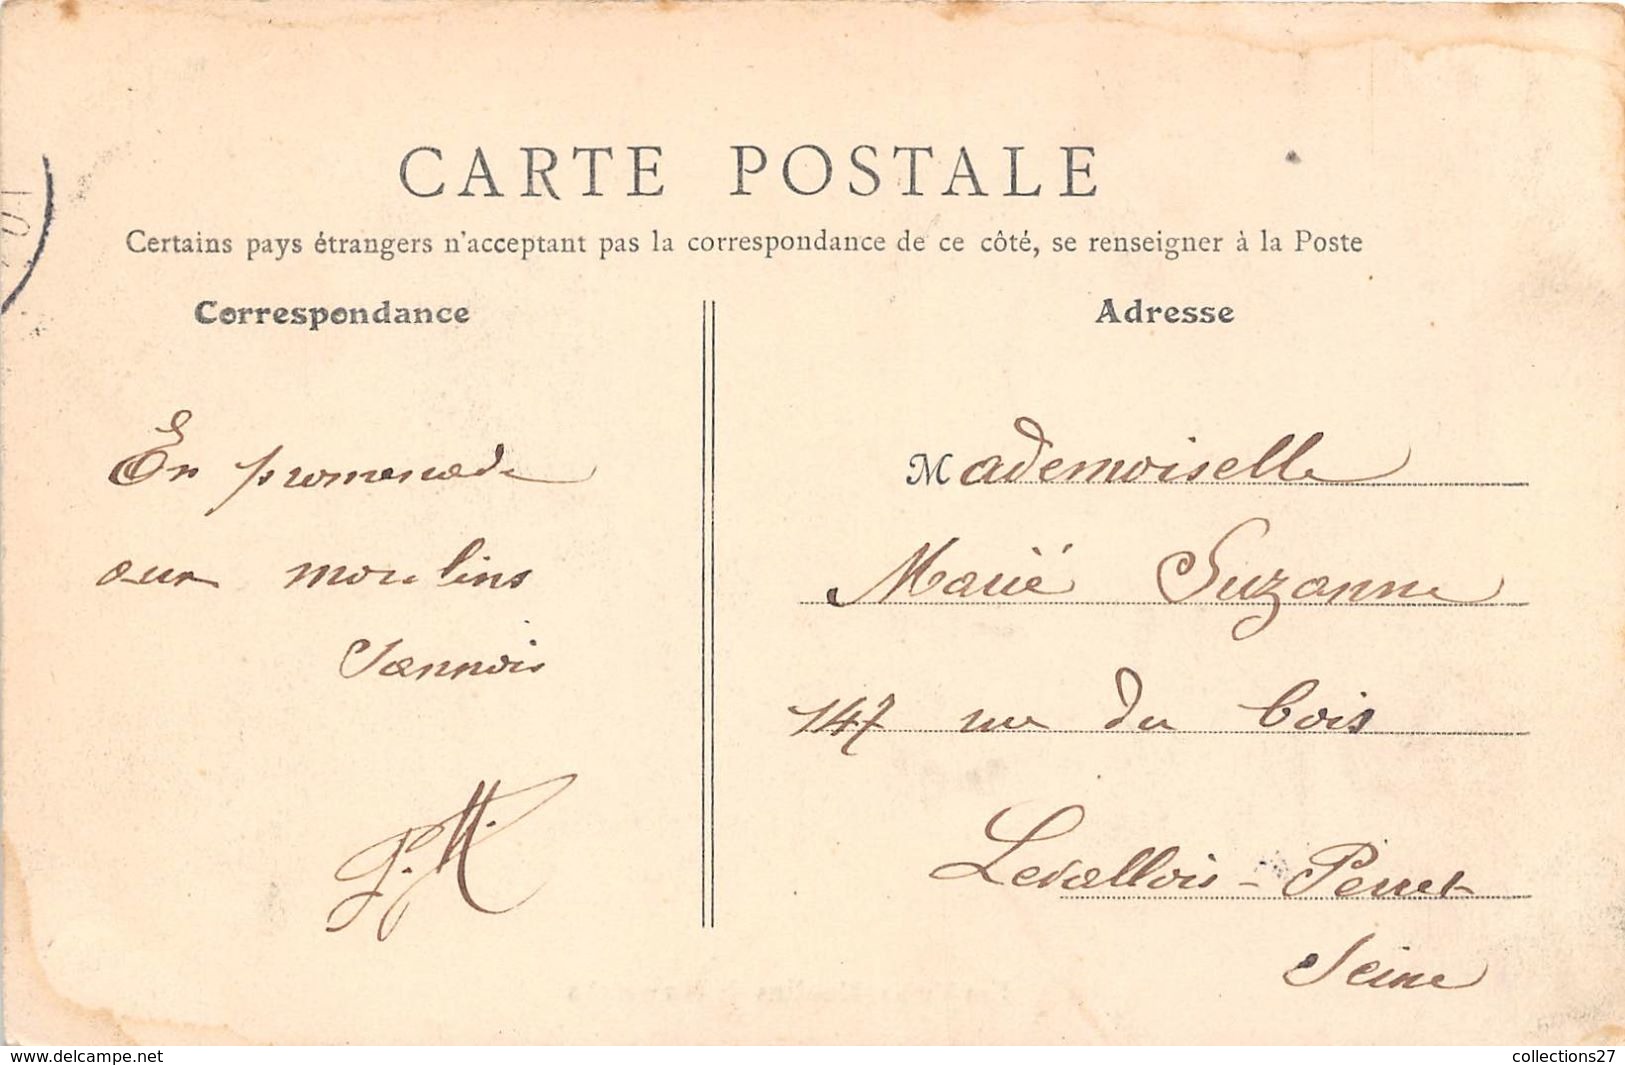 CARTE POSTALE
Certains pays étrangers n'acceptant pas la correspondance de ce côté, se renseigner à la Poste
Correspondance
En promenade
aux moulins
Sannois
P. M.
Adresse
Mademoiselle
Marié Suzanne
147 rue du bois
Levallois-Perret
Seine
www.delcampe.net
collections27